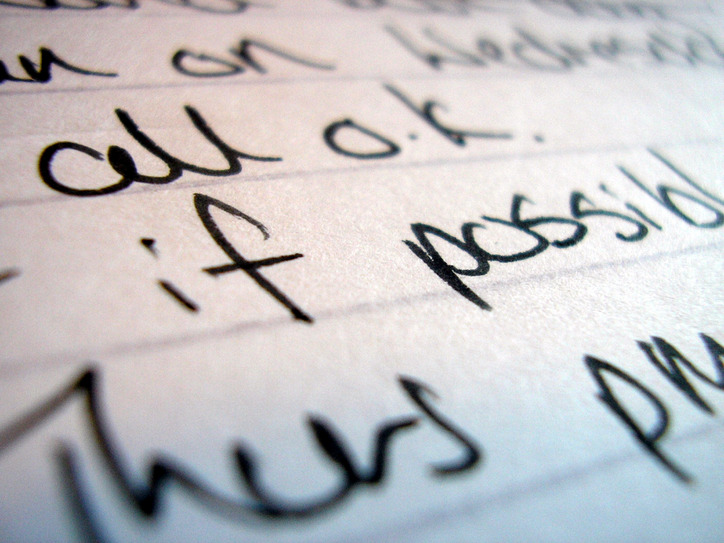 on Wednesday
all o.k.
if possibl
Thurs pm